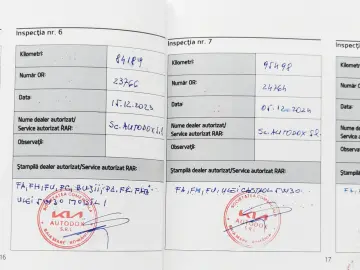 Inspecția nr. 6
Kilometri: 84189
Număr OR: 23766
Data: 15.12.2023
Nume dealer autorizat/
Service autorizat RAR: Sc. AUTODOX
Observații:
Ștampilă dealer autorizat/Service autorizat RAR:
FA, FH, FU, PC,
ULEI 5W30
KIA
AUTODOX
S.R.L.
16
Inspecția nr. 7
Kilometri: 95498
Număr OR: 24764
Data: 05.12.2024
Nume dealer autorizat/
Service autorizat RAR: Sc. AUTODOX
Observații:
Ștampilă dealer autorizat/Service autorizat RAR:
FA, FH, FU, ULEI CASTROL 5W30
KIA
AUTODOX
S.R.L.
17